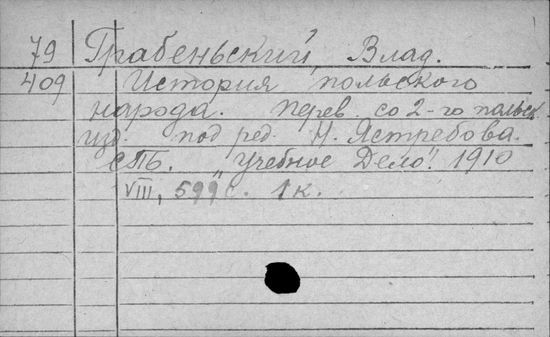 79 Грабеньский, Влад.
409 История польского
народа. Перев. со 2-го польск.
изд. под ред. Н. Ястребова.
СПБ. „Учебное Дело". 1910
VIII, 599 с. 1 к.